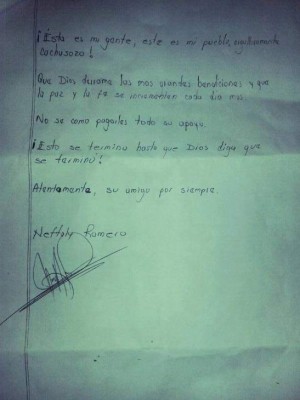 ¡Esta es mi gente, este es mi pueblo, orgullosamente
Cachusozo!
Que Dios derrame las mas grandes bendiciones y que
la paz y la fe se incrementen cada día mas.
No se como pagarles todo su apoyo.
¡Esto se termina hasta que Dios diga que
se termina!
Atentamente, su amigo por siempre.
Neftaly Romero